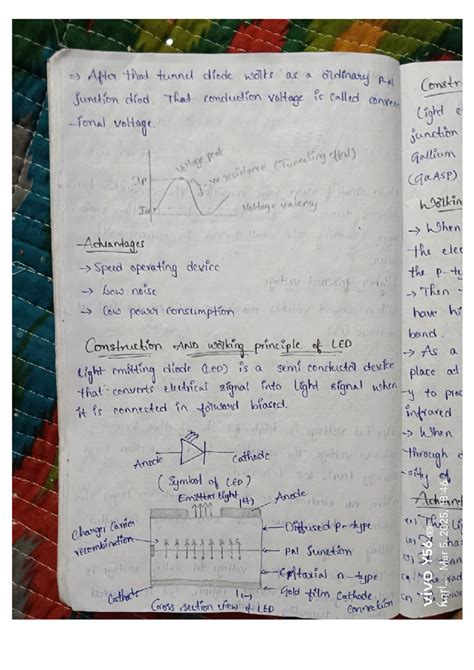 => After that tunnel diode works as a ordinary P-N
junction diod. That conduction voltage is called conven
-ional voltage.
Voltage peak
-ve resistance (Tunneling effect)
Ip
Iv
Voltage valency
-Advantages
→ Speed operating device
→ Low noise
→ Low power consumption
Construction AND working principle of LED
Light emitting diode (LED) is a semi conductor device
that converts electrical signal into light signal when
it is connected in forward biased.
Anode
Cathode
(Symbol of LED)
Emitted light
(+)
Anode
Charge Carrier
recombination
Diffused P-type
PN Junction
Epitaxial n-type
(-)
Gold film Cathode
connection
Cathode
Cross section view of LED
Constr
Light e
junction
Gallium
(GaAsP)
Workin
→ When
the elec
the p-ty
→ Then
have hi
band.
→ As a
place at
-y to pro
infrared
→ When
through
-sity of
Advant
vivo Y56
Mar 5, 2025,